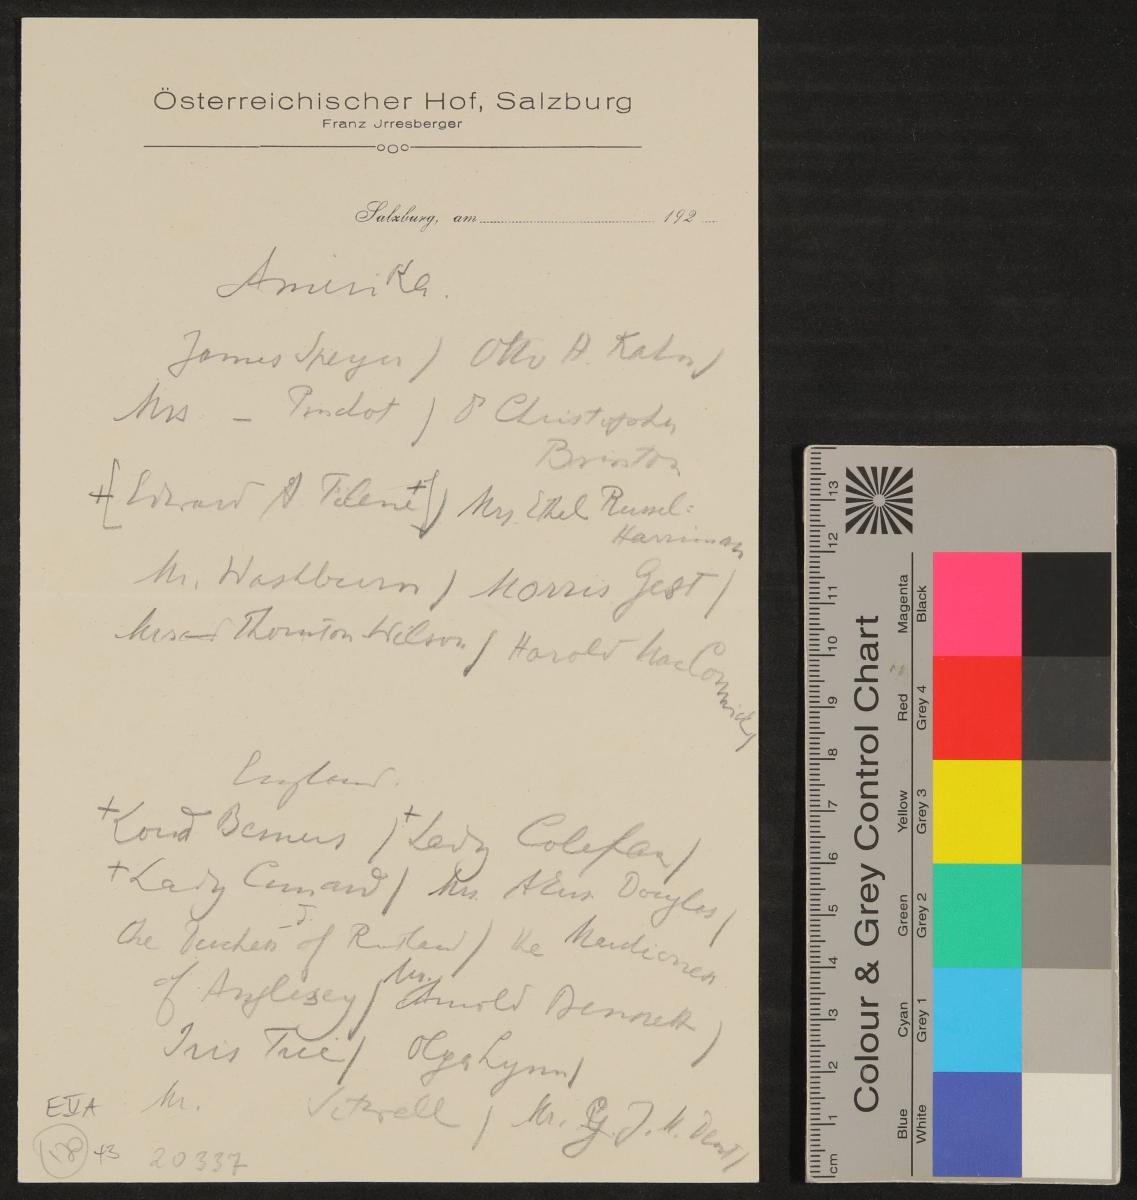 Österreichischer Hof, Salzburg
Franz Jrresberger
Salzburg, am 192
Amerika.
James Speyer / Otto H. Kahn /
Mrs – / Dr Christopher
Brinton
+ [Edward A. Filene +] / Mrs. Ethel Russel-
Harriman
Mr. Washburn / Morris Gest /
Mrs Thornton Wilson / Harold MacCormick /
England.
+ Lord Berners / + Lady Colefax /
+ Lady Cunard / Mrs. Douglas /
the Duchess of Rutland / the Mardioness
of Anglesey / Mr. Arnold Bennett /
Iris Tree / Olga Lynn /
Mr. Sitwell / Mr. J. M. Dent /
EIVA
158 43
20337
cm 1 2 3 4 5 6 7 8 9 10 11 12 13
Colour & Grey Control Chart
Blue Cyan Green Yellow Red Magenta
White Grey 1 Grey 2 Grey 3 Grey 4 Black